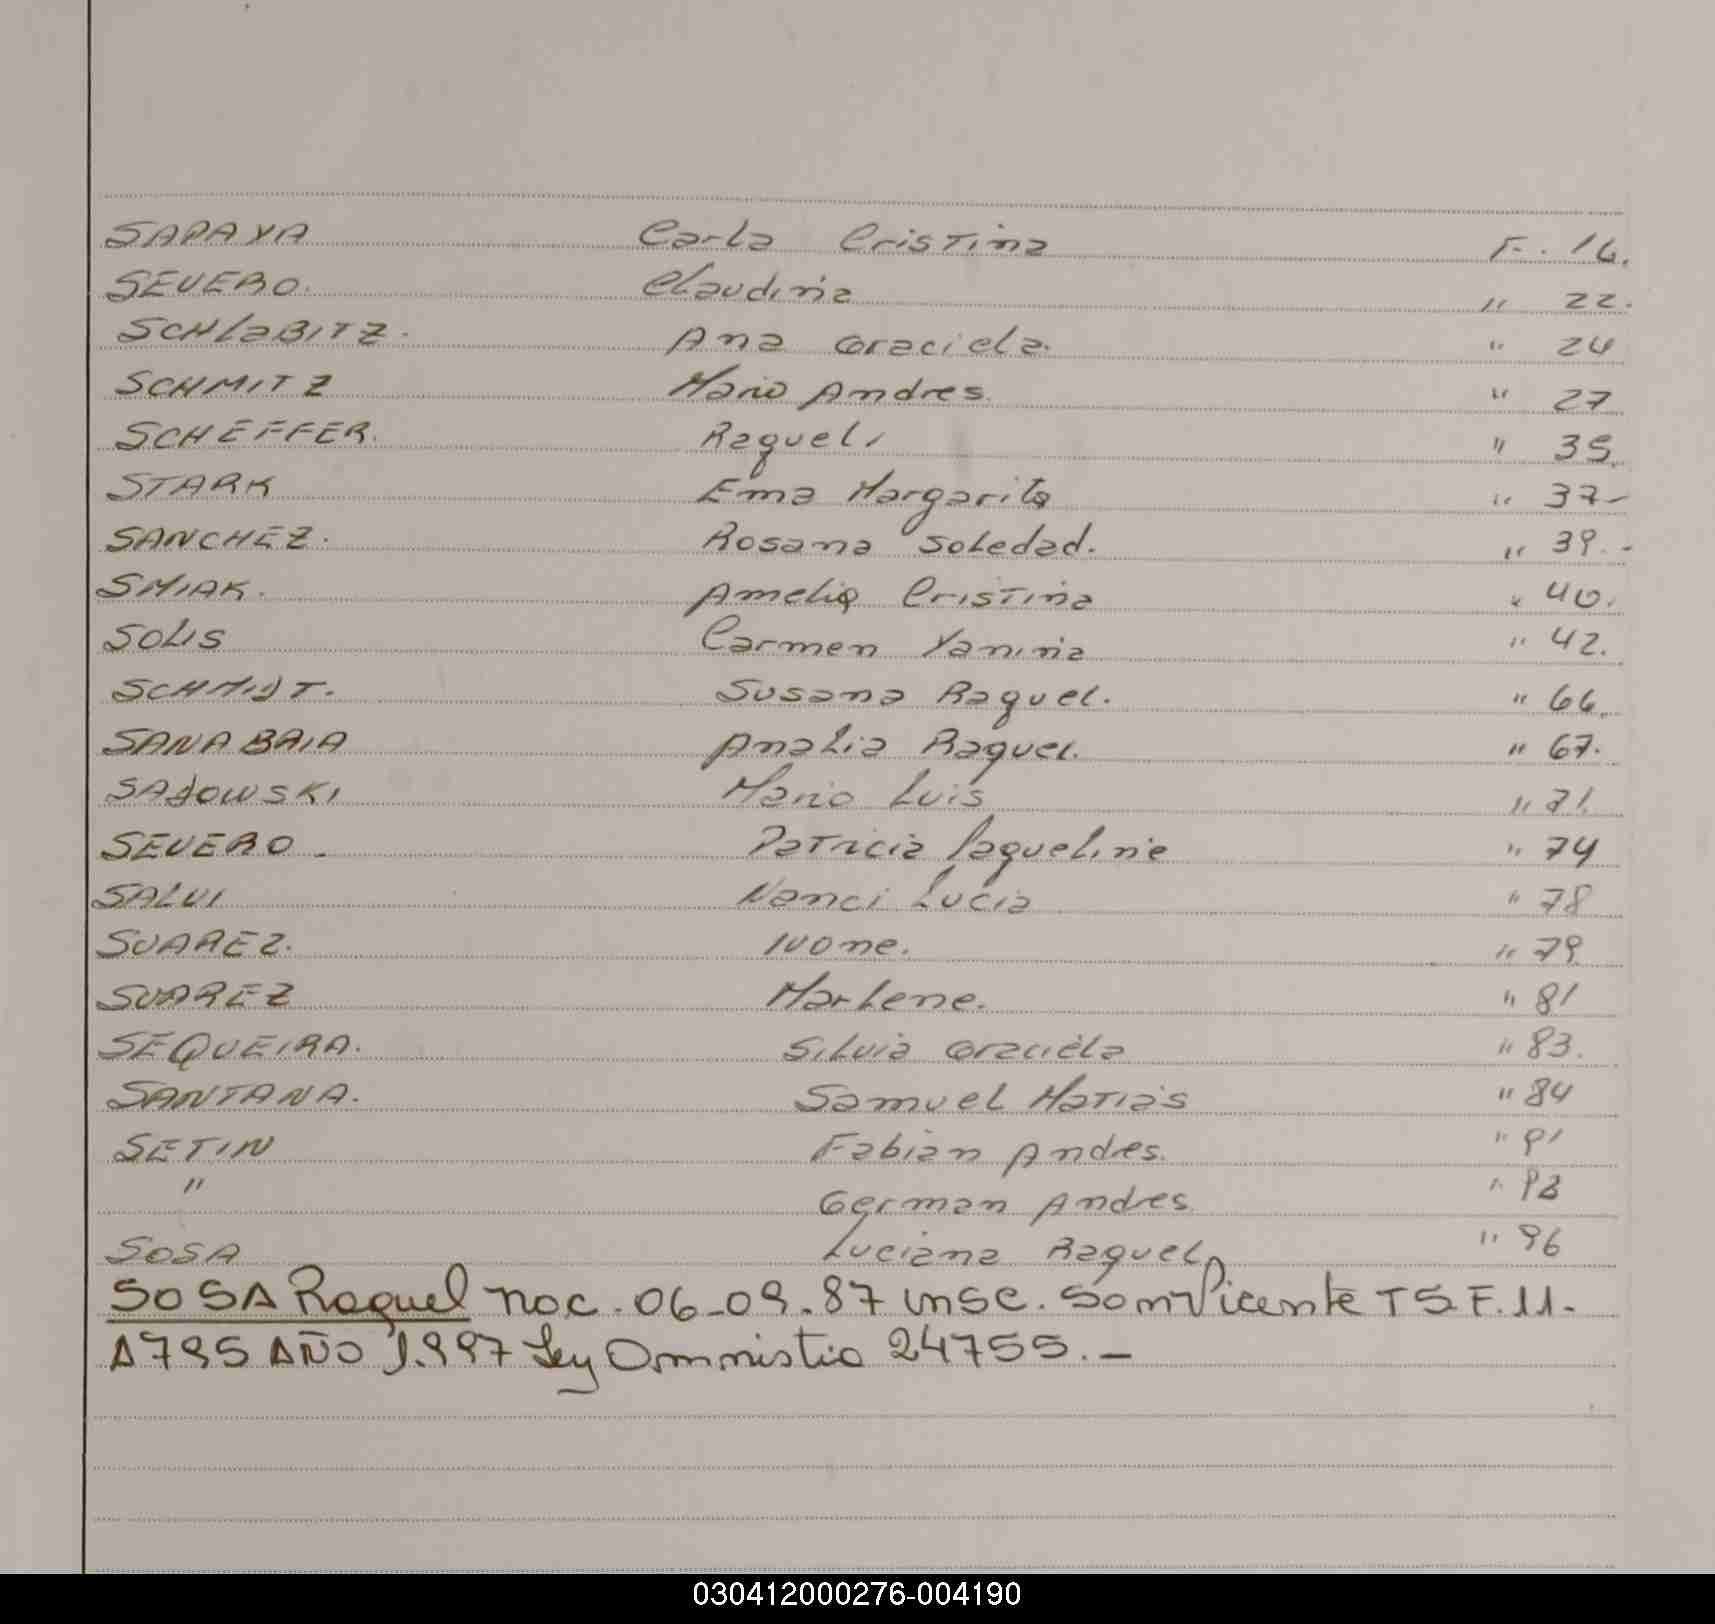 SAPAYA Carla Cristina F. 16.
SEVERO. Claudina " 22.
SCHLaBITZ. Ana Graciela. " 24
SCHMITZ Mario Andres. " 27
SCHEFFER. Raquel. " 35.
STARK Ema Margarita " 37-
SANCHEZ. Rosana Soledad. " 39.-
SMIAK. Amelia Cristina " 40.
SOLIS Carmen Yanina " 42.
SCHMIDT. Susana Raquel. " 66.
SANABRIA Analia Raquel. " 67.
SAdOWSKI Mario Luis " 71.
SEVERO. Patricia Jaqueline " 74
SALVI Nanci Lucia " 78
SUAREZ. Ivone. " 79
SUAREZ Marlene. " 81
SEQUEIRA. Silvia Graciela " 83.
SANTANA. Samuel Matias " 84
SETIN Fabian Andres. " 91
" German Andres " 93
SOSA Luciana Raquel " 96
SOSA Raquel nac. 06-09-87 insc. San Vicente T5 F.11.
A795 AÑO 1.997 Ley Amnistia 24755.-
030412000276-004190